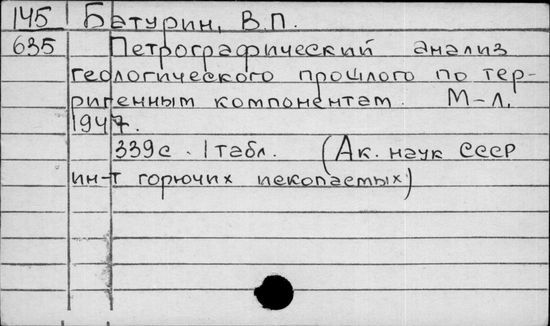 145 Батурин, В.П.
635 Петрографический анализ
геологического прошлого по тер-
ригенным компонентам. М-Л.
1947.
339с. 1 табл. (Ак. наук СССР
ин-т горючих ископаемых)